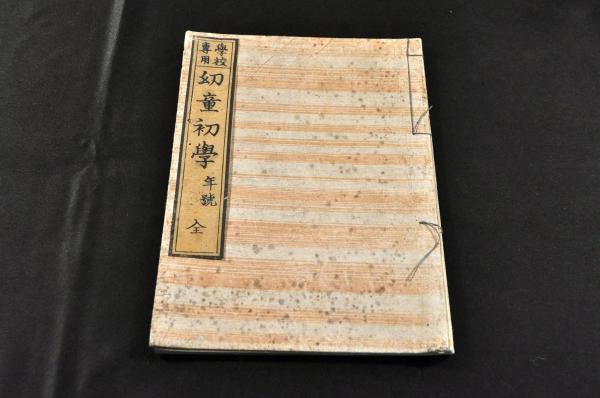 學校
專用
幼童初學
年號
全